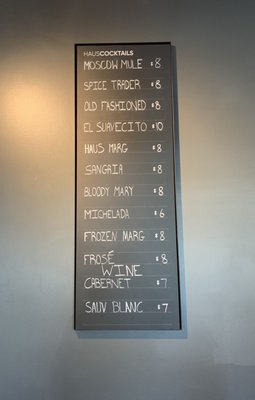 HAUSCOCKTAILS
MOSCOW MULE $8
SPICE TRADER $8
OLD FASHIONED $8
EL SUAVECITO $10
HAUS MARG $8
SANGRIA $8
BLOODY MARY $8
MICHELADA $6
FROZEN MARG $8
FROSÉ $8
WINE
CABERNET $7
SAUV BLANC $7